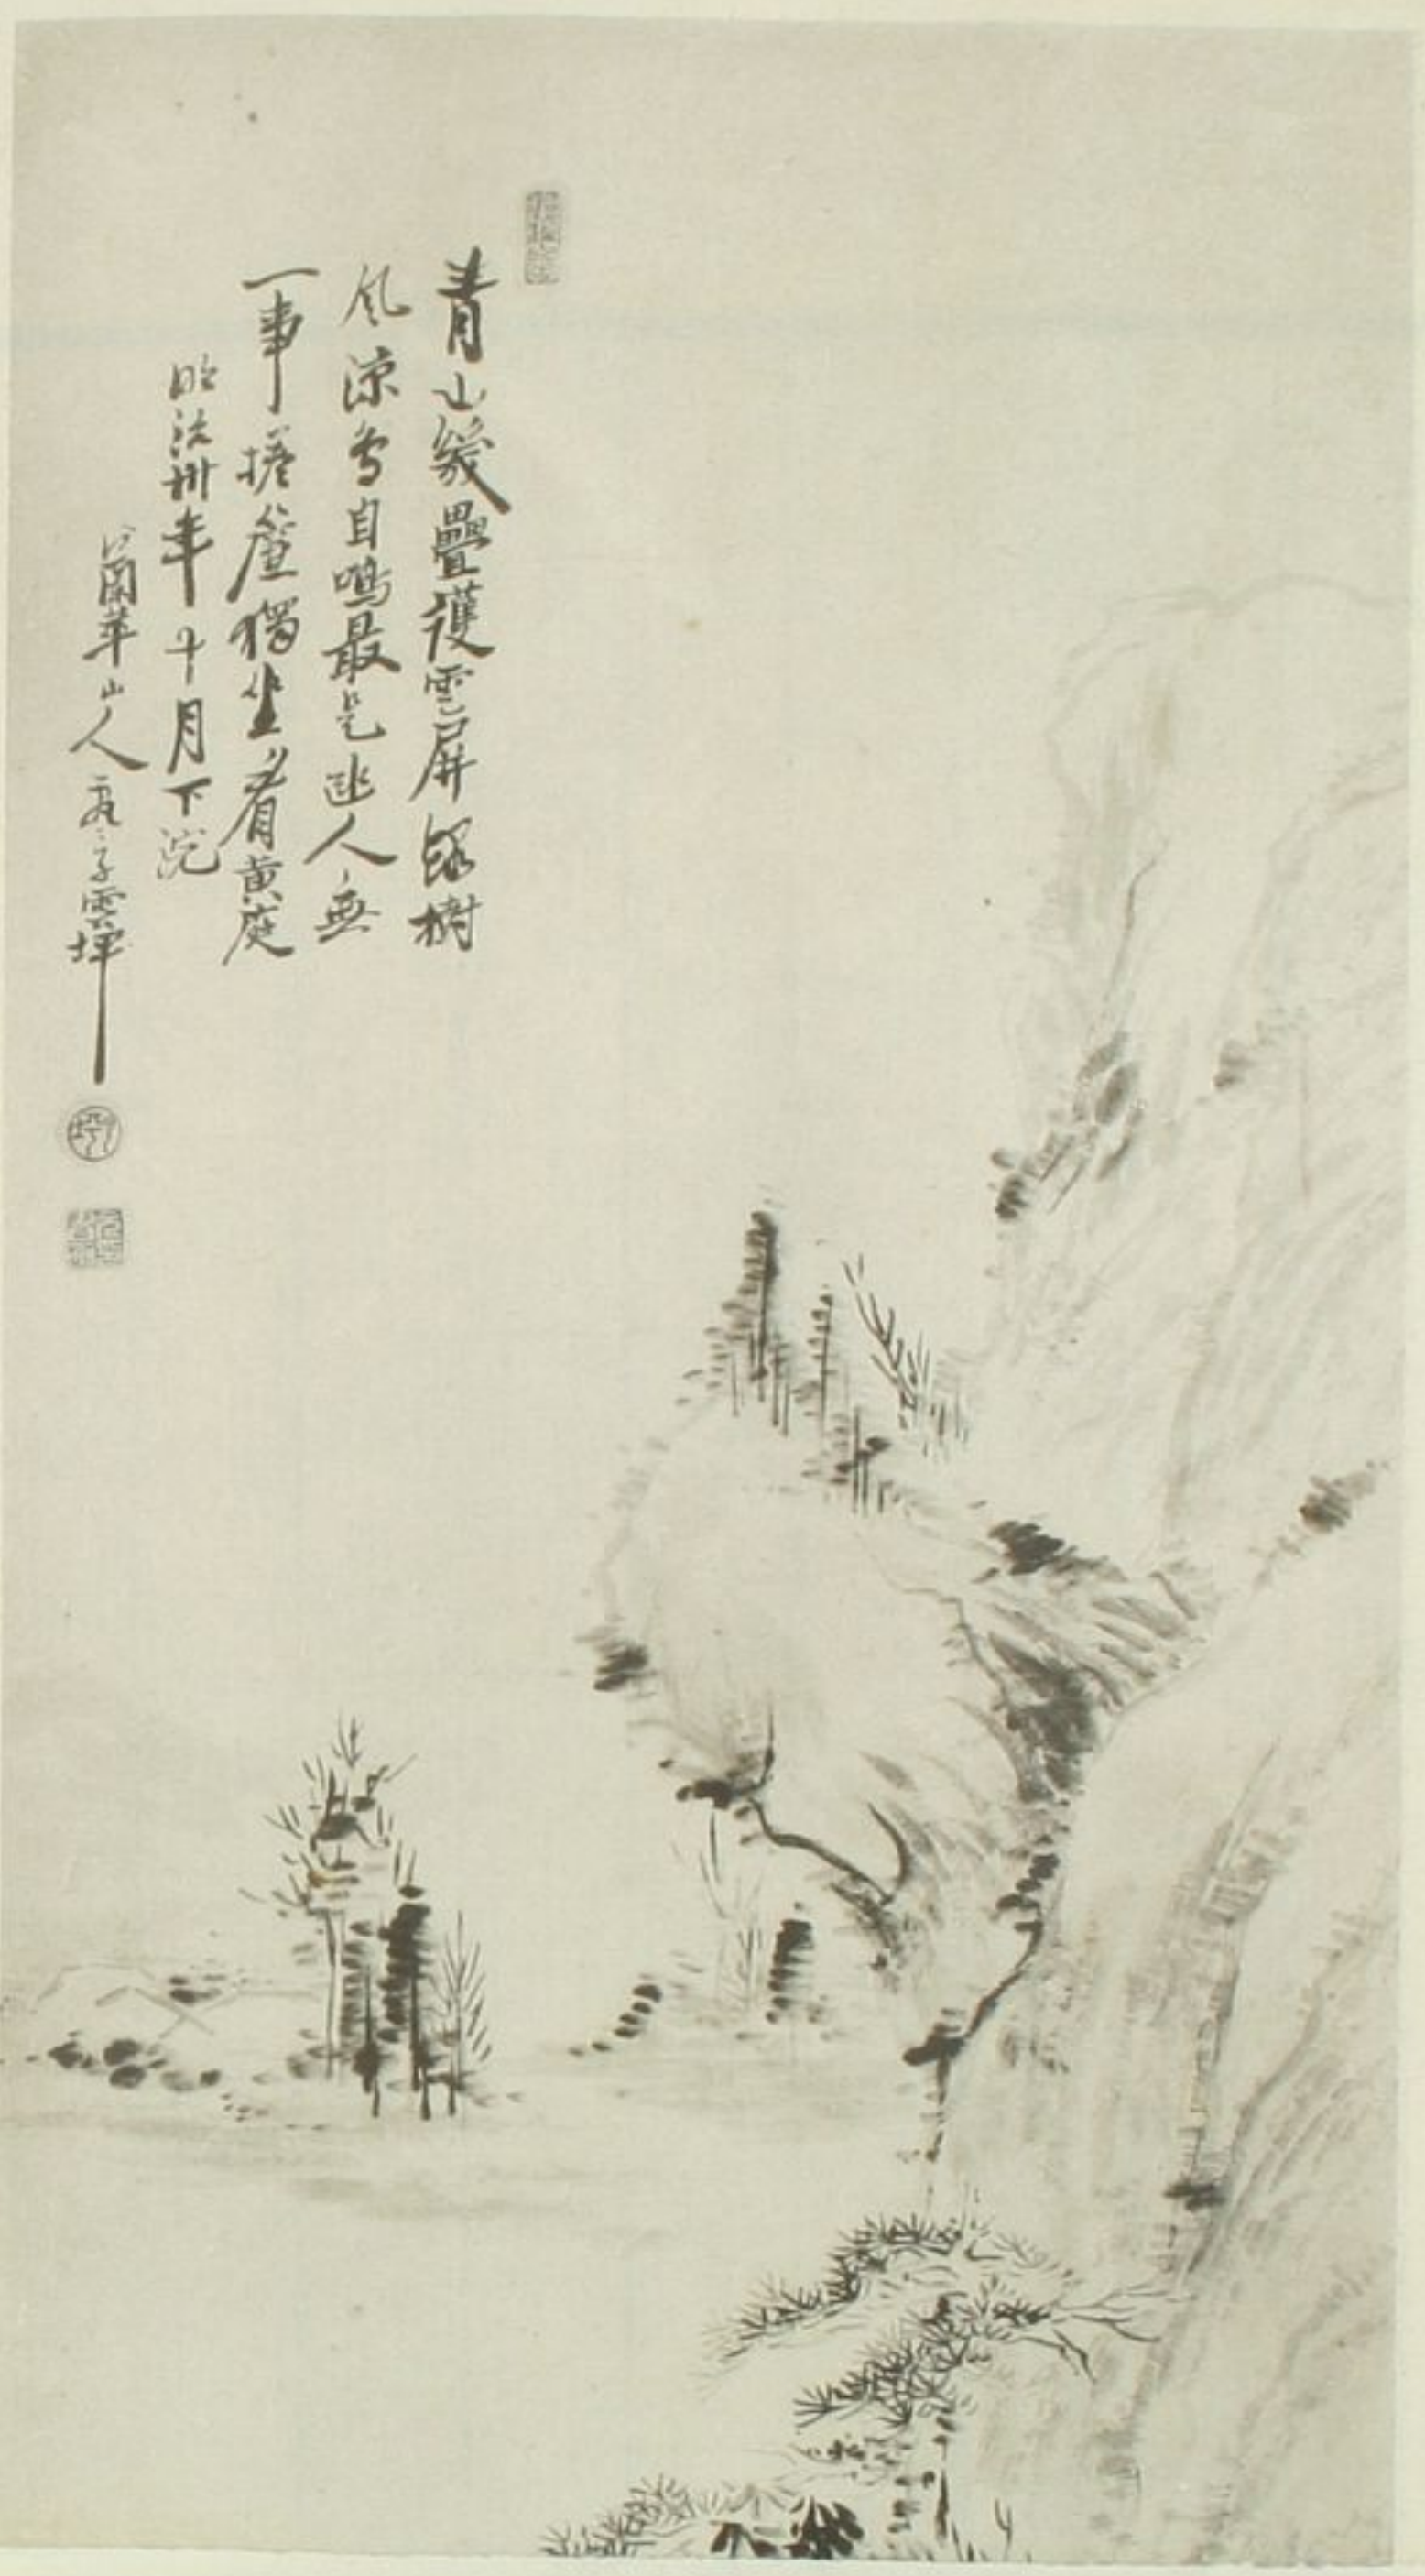 青山幾疊護雲屏緑樹
風涼鳥自鳴最是幽人無
一事捲簾獨坐看黄庭
明治卅年十月下浣
蘭華山人
雲坪